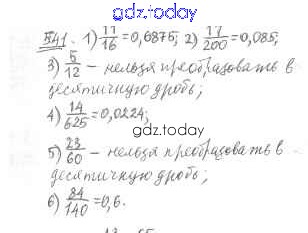 gdz.today
541. 1) 11/16 = 0,6875; 2) 17/200 = 0,085;
3) 5/12 – нельзя преобразовать в
десятичную дробь;
4) 14/625 = 0,0224;
gdz.today
5) 23/60 – нельзя преобразовать в
десятичную дробь;
6) 84/140 = 0,6.
gdz.today